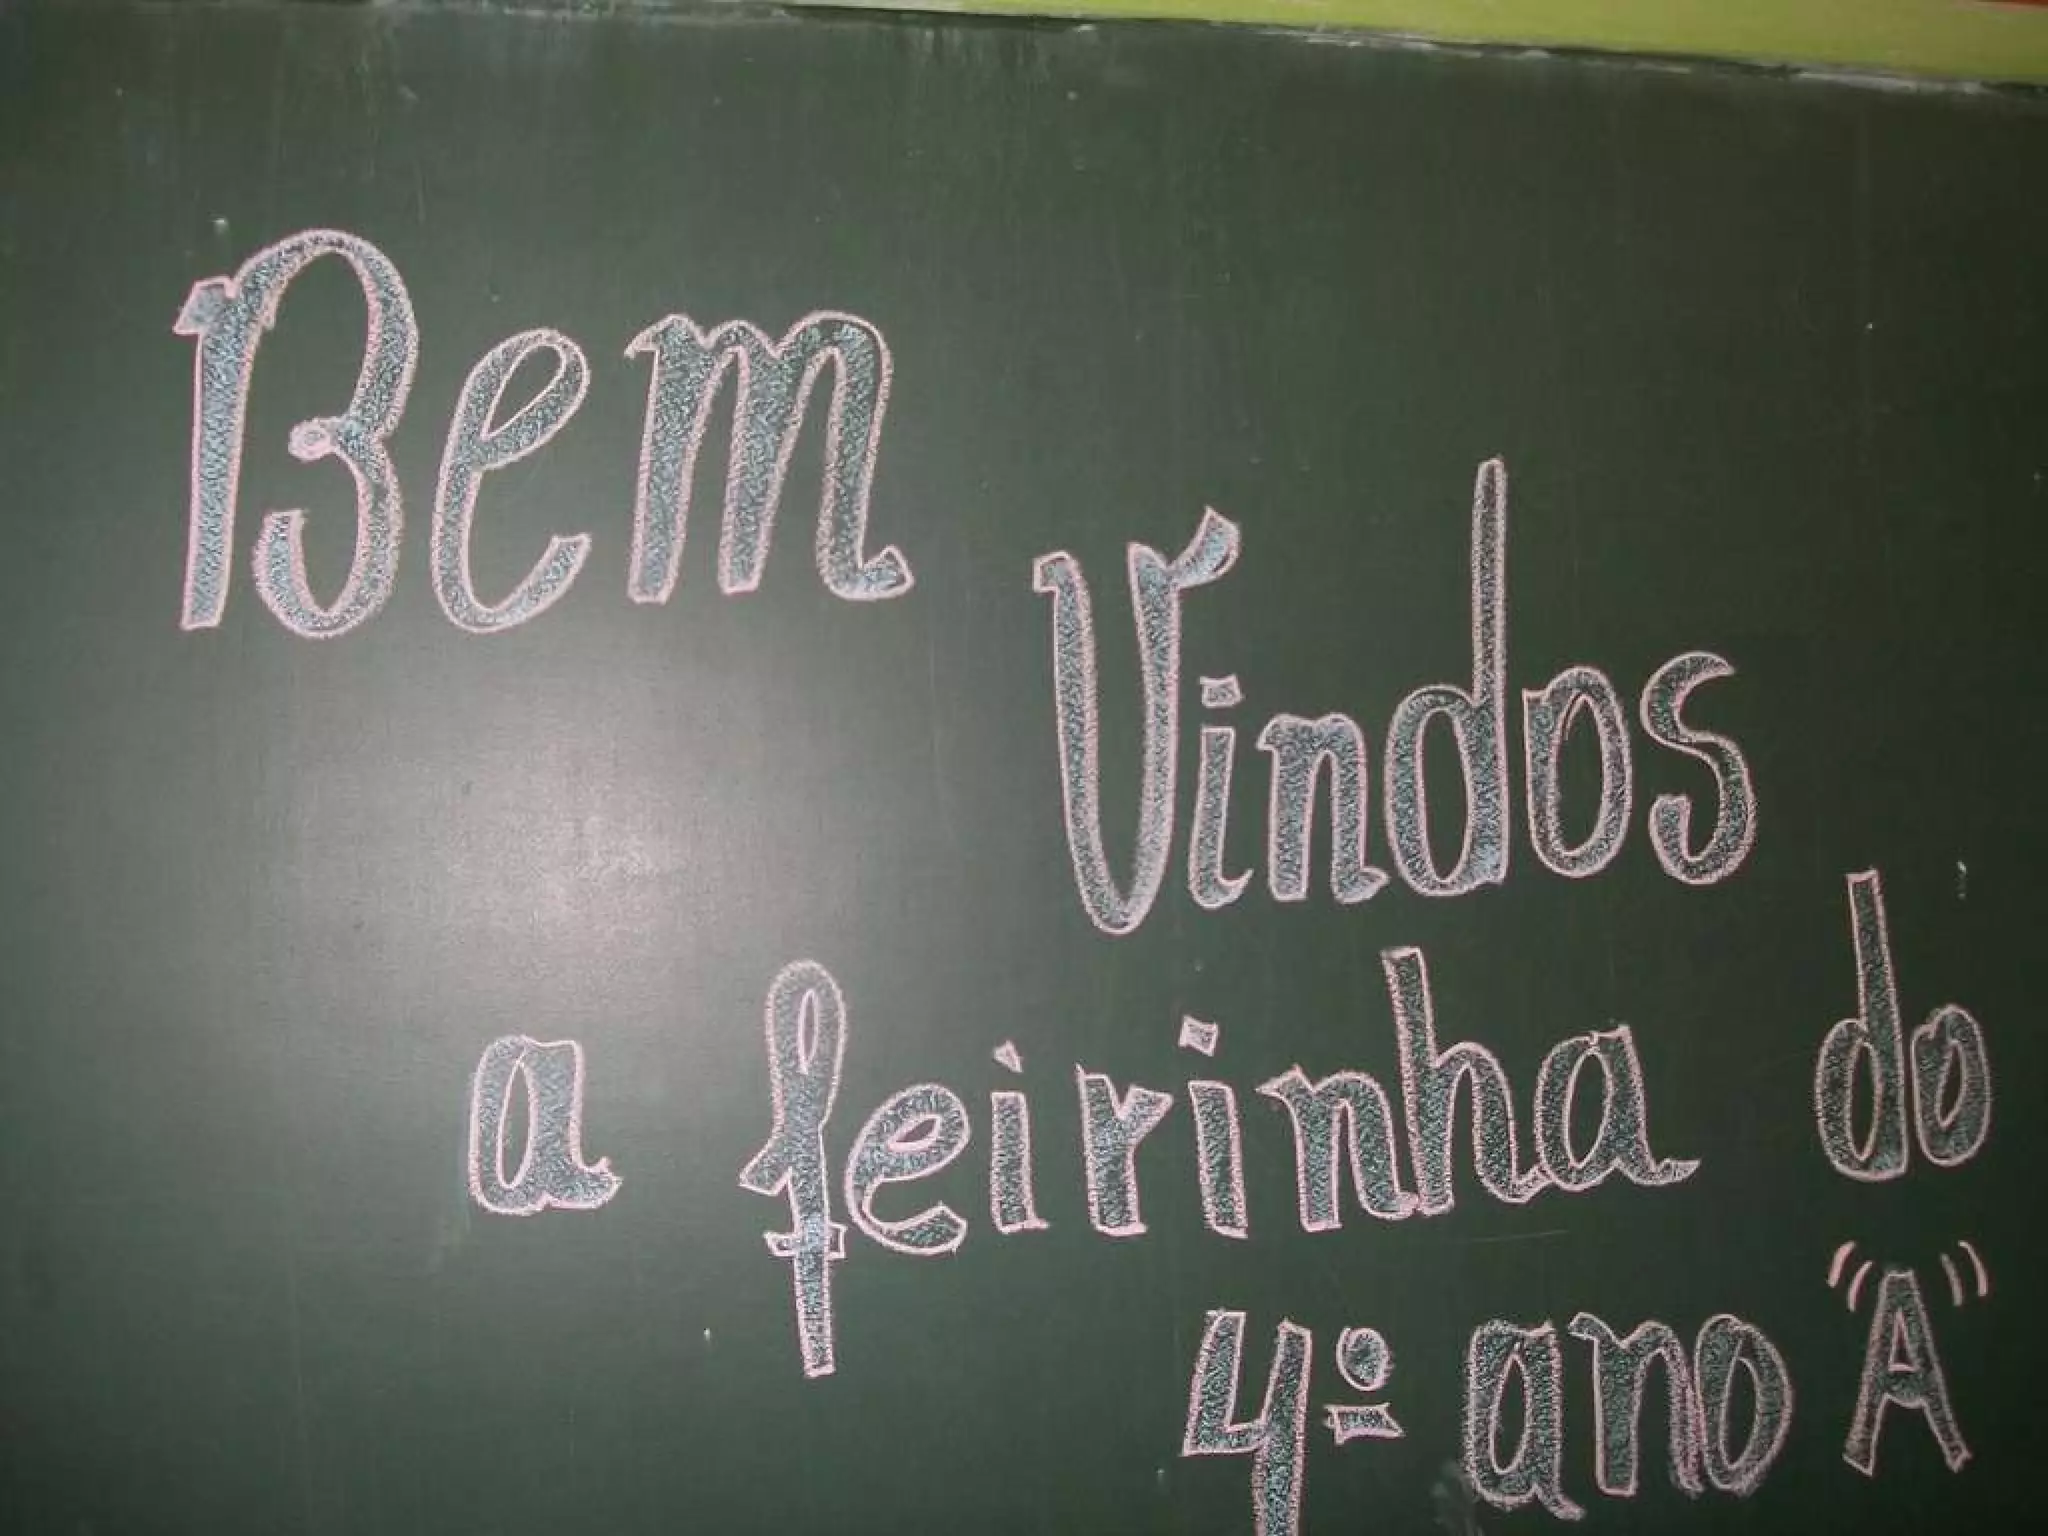 Bem
Vindos
a feirinha do
4º ano "A"